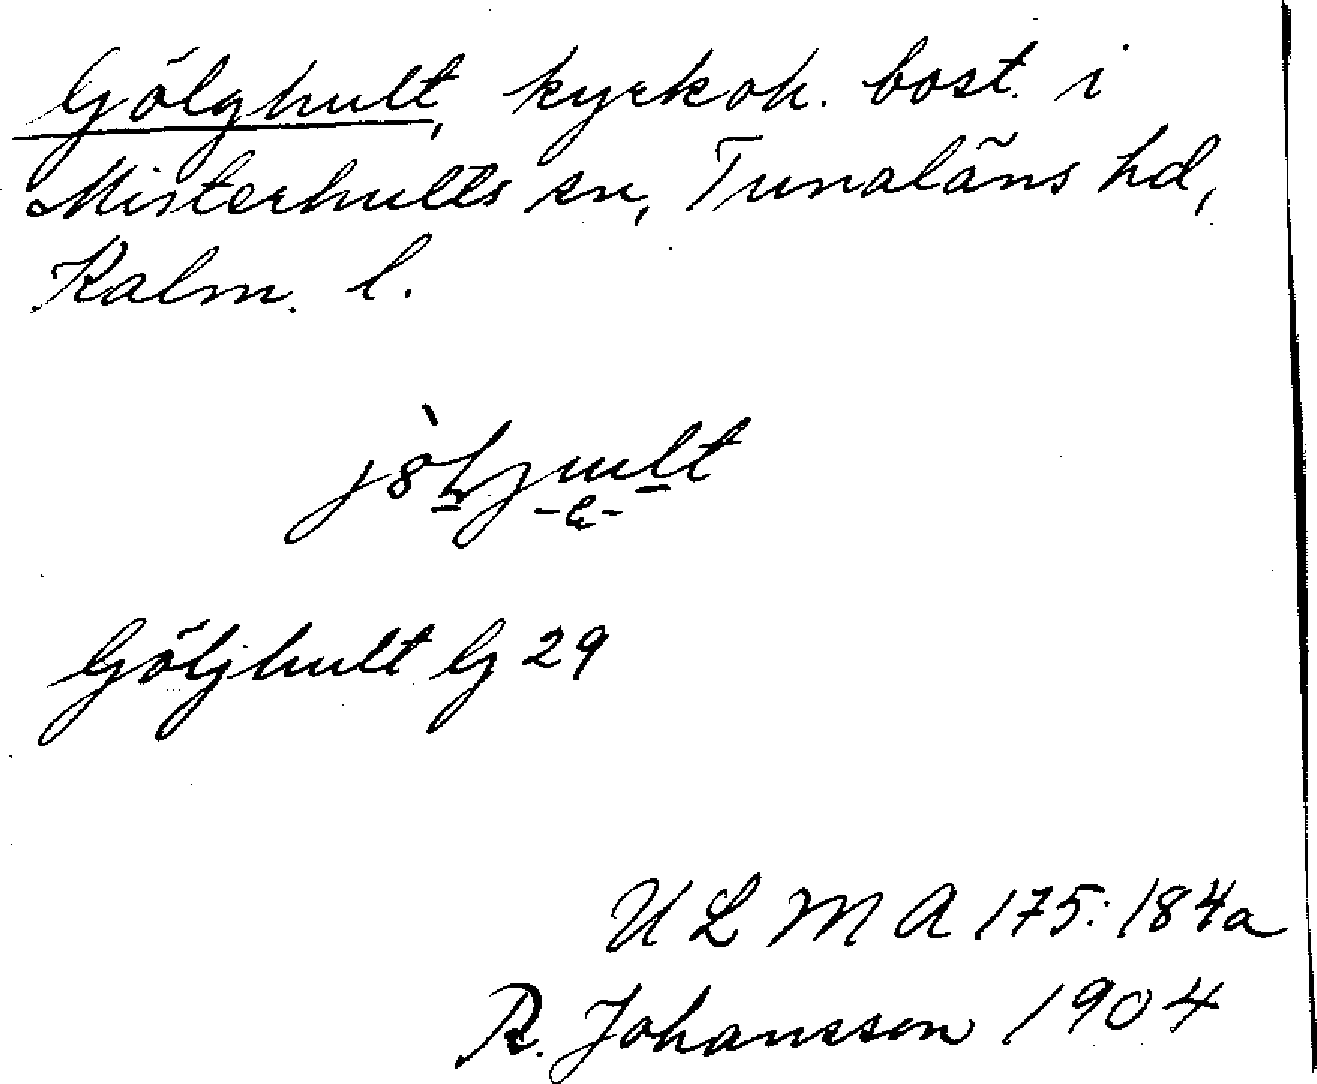 Gölghult, kyrkoh. bost. i
Misterhults sn, Tunaläns hd,
Kalm. l.
Göljhult G 29
U L M A 175:184a
R. Johansson 1904